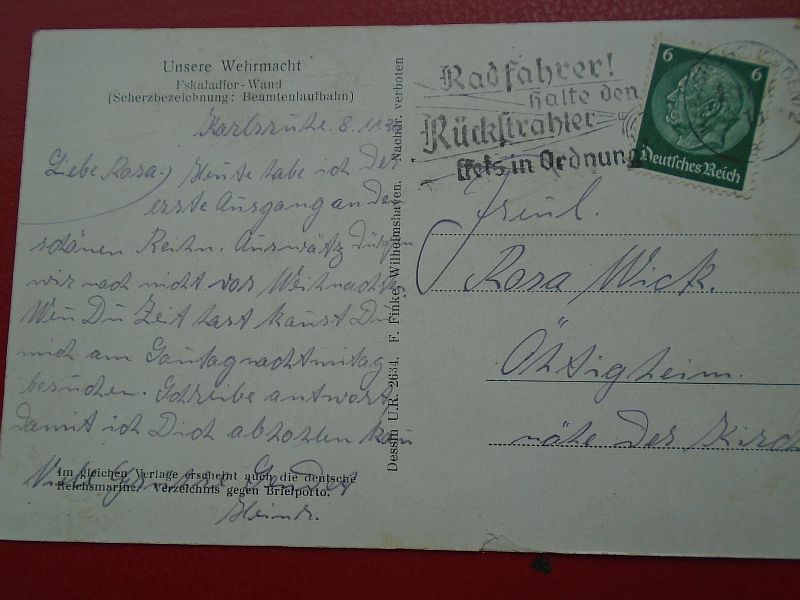 Unsere Wehrmacht
Eskaladier-Wand
(Scherzbezeichnung: Beamtenlaufbahn)
Karlsruhe. 8. 11.
Liebe Rosa. Heute habe ich der
erste Ausgang an den
schönen Reihn. Auswärtz dürfen
wir noch nicht vor Weihnachte.
Wen Du Zeit hast kanst Du
mich am Sontagnachtmitag
besuchen. Schreibe antwort
damit ich Dich abhohlen kan
Im gleichen Verlage erscheint auch die deutsche
Reichsmarine. Verzeichnis gegen Briefporto.
Viele Grüsse sendet
Heinr.
Dessin U.R. 2634. F. Finke, Wilhelmshaven. Nachdr. verboten
Radfahrer!
halte den
Rückstrahler
stets in Ordnung
6 6
Deutsches Reich
2
Freul.
Rosa Wick.
Öhtigheim.
nähe der Kirch